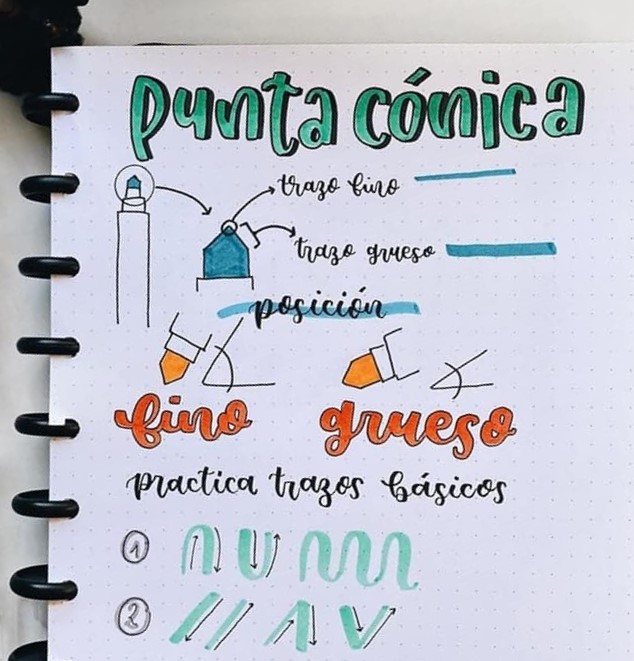 punta cónica
trazo fino
trazo grueso
posición
fino grueso
practica trazos básicos
1
2